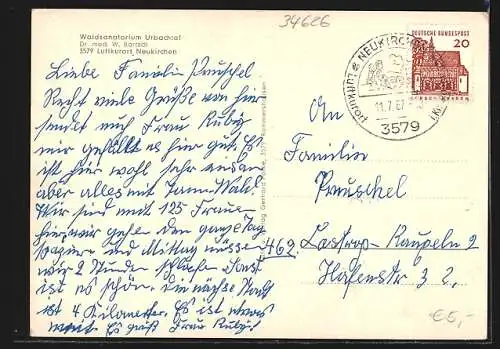 34626
Waldsanatorium Urbachtal
Dr. med. W. Bartsch
3579 Luftkurort Neukirchen
DEUTSCHE BUNDESPOST
20
NEUKIRCHEN
LUFTKURORT
11.7.67
3579
Liebe Familie Preuschel
Recht viele Grüße von hier
sendet euch Frau Ruby
mir gefällt es hier gut. Es
ist hier wohl sehr
aber alles mit Wald
Wir sind mit 125 Frauen
hier wir gehen den ganze Tag
und Mittag müssen
wir 2 Stunden schlafen Sonst
ist es schön. Die nächste Stadt
ist 4 Kilometer. Es ist etwas
weit. Es grüßt Frau Ruby!
An
Familie
Preuschel
462. Castrop-Rauxel 2
Hafenstr 32,
€5,-